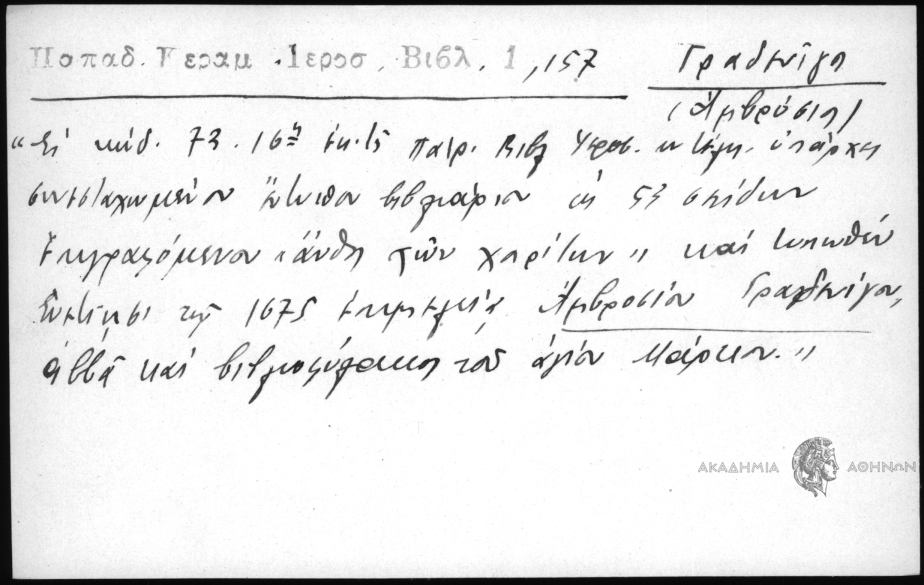 Παπαδ. Κεραμ. Ιεροσ. Βιβλ. 1, 157
Γραδενίγο
(Ἀμβρόσιο)
"Ἐν κώδ. 73. 16ης ἑκ. τῆς Πατρ. Βιβλ. Ἱεροσ. ὑπάρχει
συνεσταχωμένον ἔντυπον βιβλιάριον ἐκ 53 σελίδων
ἐπιγραφόμενον "ἄνθη τῶν χαρίτων" καὶ τυπωθὲν
Ἐνετίησι τῷ 1675 ἐπιμελείᾳ Ἀμβροσίου Γραδενίγου,
ἀββᾶ καὶ βιβλιοφύλακος τοῦ ἁγίου Μάρκου."
ΑΚΑΔΗΜΙΑ ΑΘΗΝΩΝ